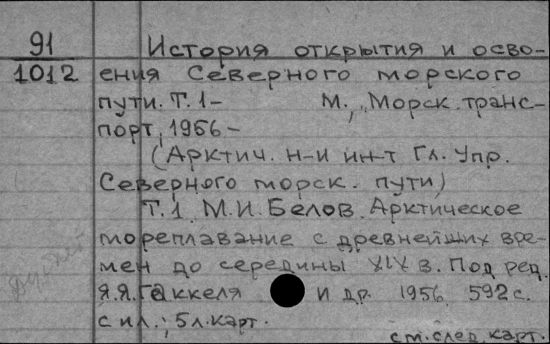 91
1012
История открытия и осво-
ения Северного морского
пути. Т. 1- М., Морск. транс-
порт, 1956 -
(Арктич. н-и ин-т Гл. Упр.
Северного морск. пути)
Т. 1. М.И. Белов. Арктическое
мореплавание с древнейших вре-
мен до середины XIX в. Под ред.
Я.Я. Гаккеля и др. 1956. 592 с.
с ил.; 5 л. карт.
см. след. карт.